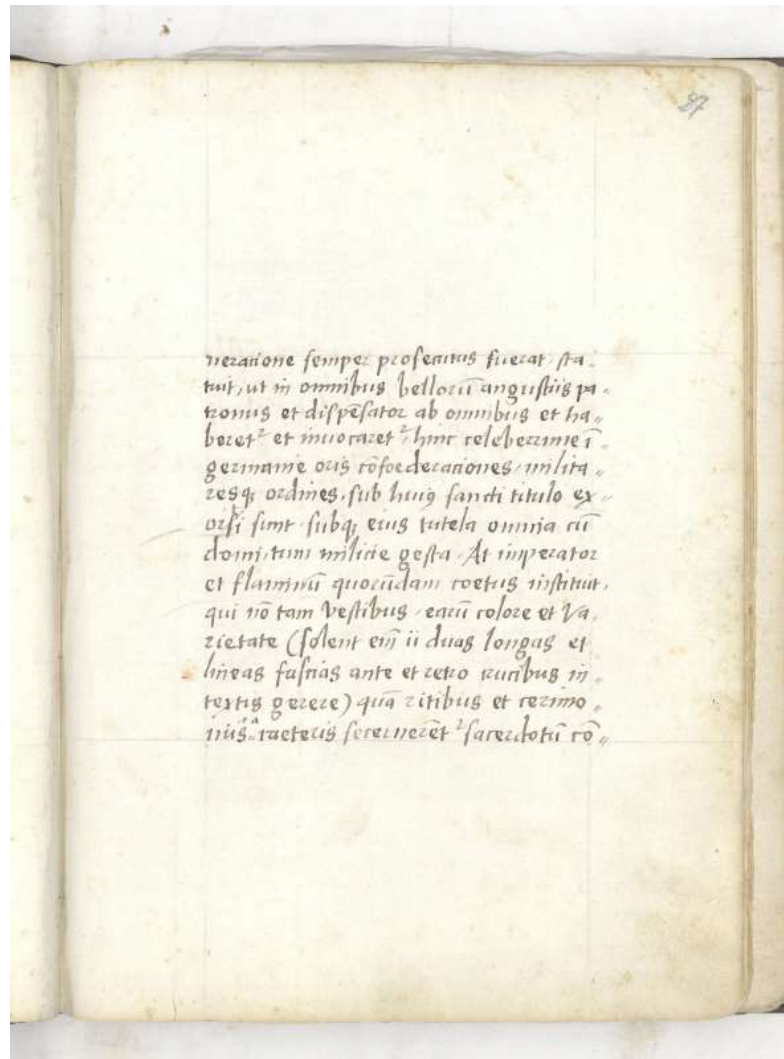 27
neracione semper prosecutus fuerat, sta-
tuit, ut in omnibus bellorū angustiis pa-
tronus et dispēsator ab omnibus et ha-
beret² et invocaret², hinc celeberrime ī
germanie oris cōfoederaciones, milita-
resq; ordines, sub huiꝰ sancti titulo ex-
orsi sunt, subq; eius tutela omnia cū
domi, tum milicie gesta. At imperator
et flaminū quorūdam coetus instituit,
qui nō tam vestibus, earū colore et va-
rietate (solent eīm ii duas longas et
lineas fascias ante et retro crucibus in-
textis gerere) quā ritibus et cerimo-
niis a caeteris secernerēt² sacerdotū cō-